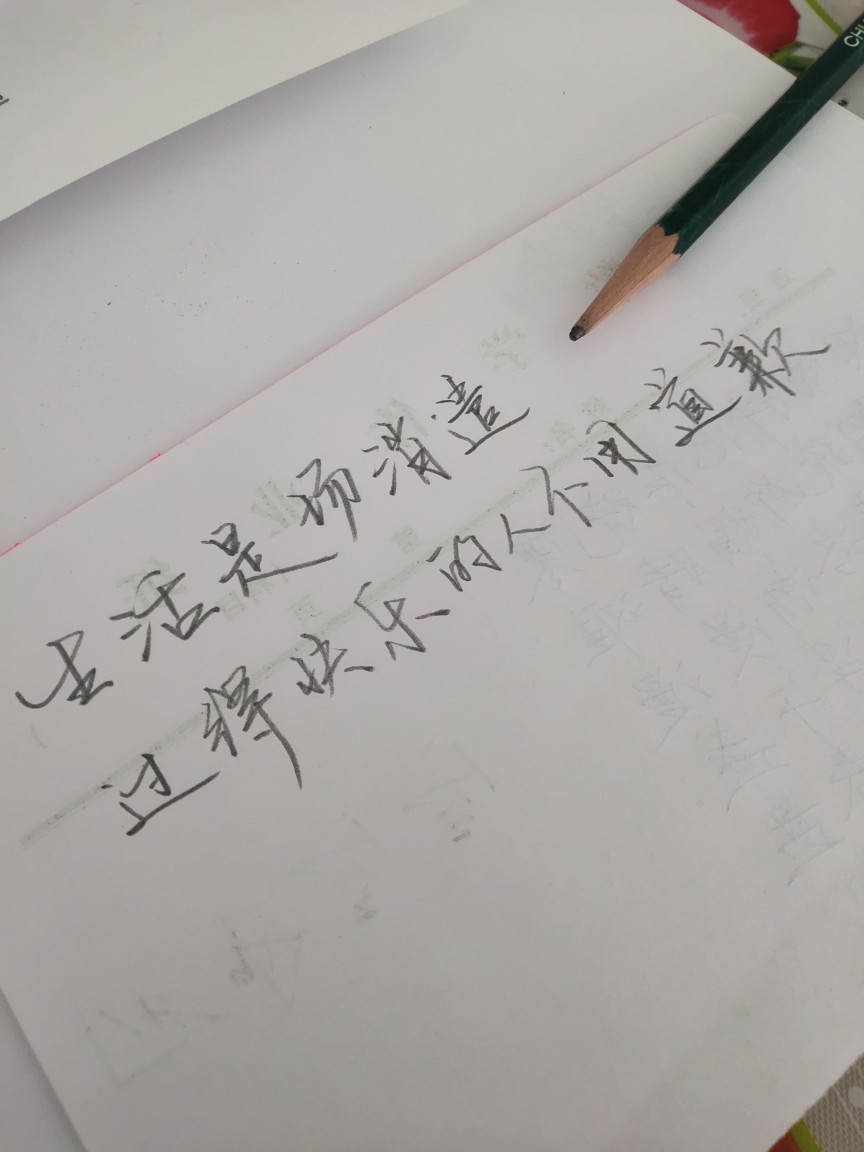 生活是场消遣
过得快乐的人不用道歉
CH